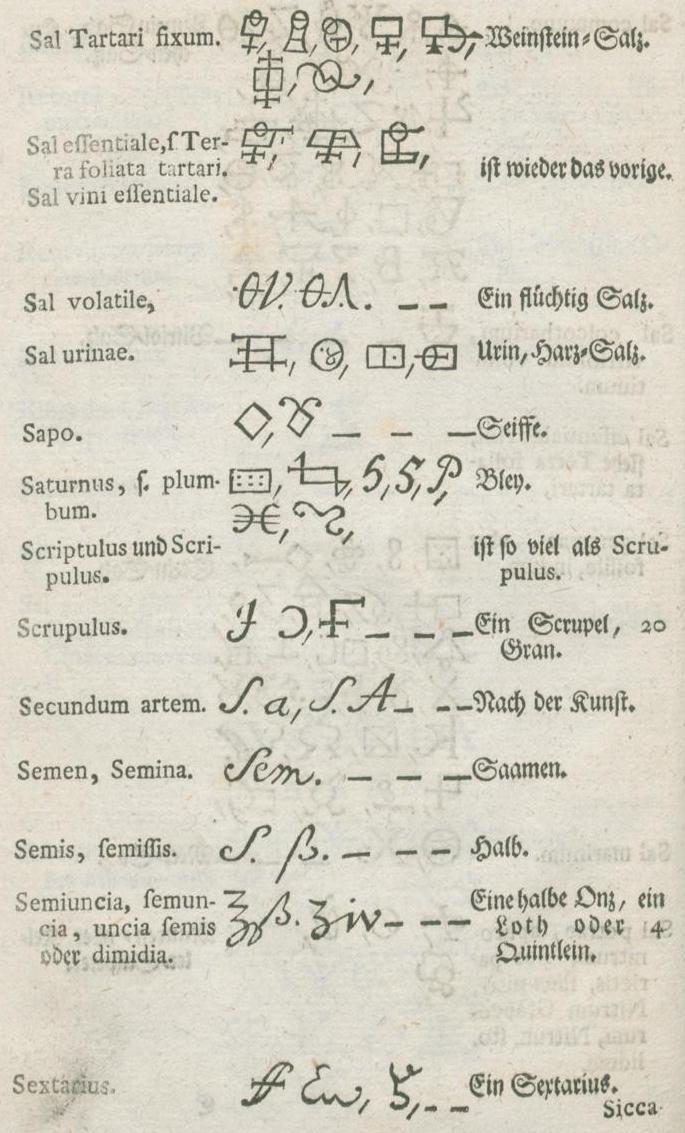 Sal Tartari fixum. Weinſtein⸗Salz.
Sal eſſentiale, ſ. Ter-
ra foliata tartari. iſt wieder das vorige.
Sal vini eſſentiale.
Sal volatile, — — Ein flüchtig Salz.
Sal urinae. Urin, Harz⸗Salz.
Sapo. — — — Seiffe.
Saturnus, ſ. plum- Bley.
bum.
Scriptulus und Scri- iſt ſo viel als Scru-
pulus. pulus.
Scrupulus. — — — Ein Scrupel, 20
Gran.
Secundum artem. S. a, S. A — — Nach der Kunſt.
Semen, Semina. Sem. — — — Saamen.
Semis, ſemiſſis. S. ß. — — — — Halb.
Semiuncia, ſemun- Eine halbe Onz, ein
cia, uncia ſemis ʒß. ʒiv — — — Loth oder 4
oder dimidia. Quintlein.
Sextarius. — — Ein Sextarius.
Sicca